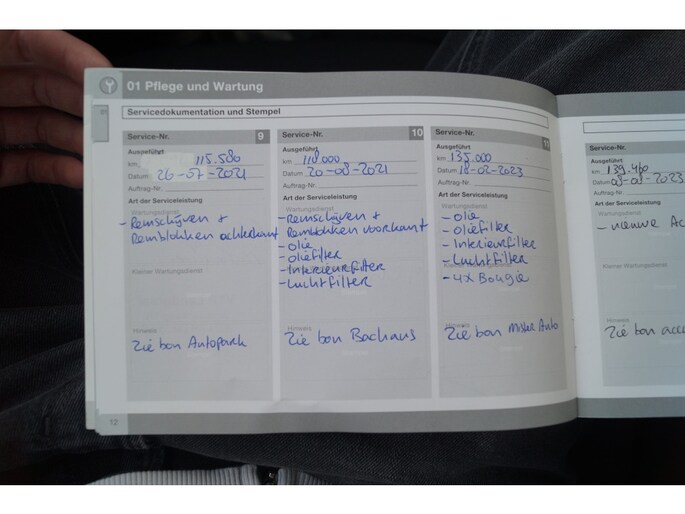 01 Pflege und Wartung
Servicedokumentation und Stempel
Service-Nr. 9
Ausgeführt
km 115.580
Datum 26-07-2021
Auftrag-Nr.
Art der Serviceleistung
Wartungsdienst
- Remschijven +
Remblokken achterkant
Kleiner Wartungsdienst
Hinweis
Zie bon Autopark
Service-Nr. 10
Ausgeführt
km 118.000
Datum 20-08-2021
Auftrag-Nr.
Art der Serviceleistung
Wartungsdienst
- Remschijven +
Remblokken voorkant
- olie
- oliefilter
- Interieurfilter
- Luchtfilter
Hinweis
Zie bon Bachaus
Service-Nr. 11
Ausgeführt
km 135.000
Datum 18-02-2023
Auftrag-Nr.
Art der Serviceleistung
Wartungsdienst
- olie
- oliefilter
- Interieurfilter
- Luchtfilter
- 4x Bougie
Hinweis
Zie bon Mister Auto
Service-Nr.
Ausgeführt
km 139.460
Datum 03-09-2023
Auftrag-Nr.
Art der Serviceleistung
Wartungsdienst
- nieuwe Ac
Kleiner Wartungsdienst
Hinweis
Zie bon accu
12